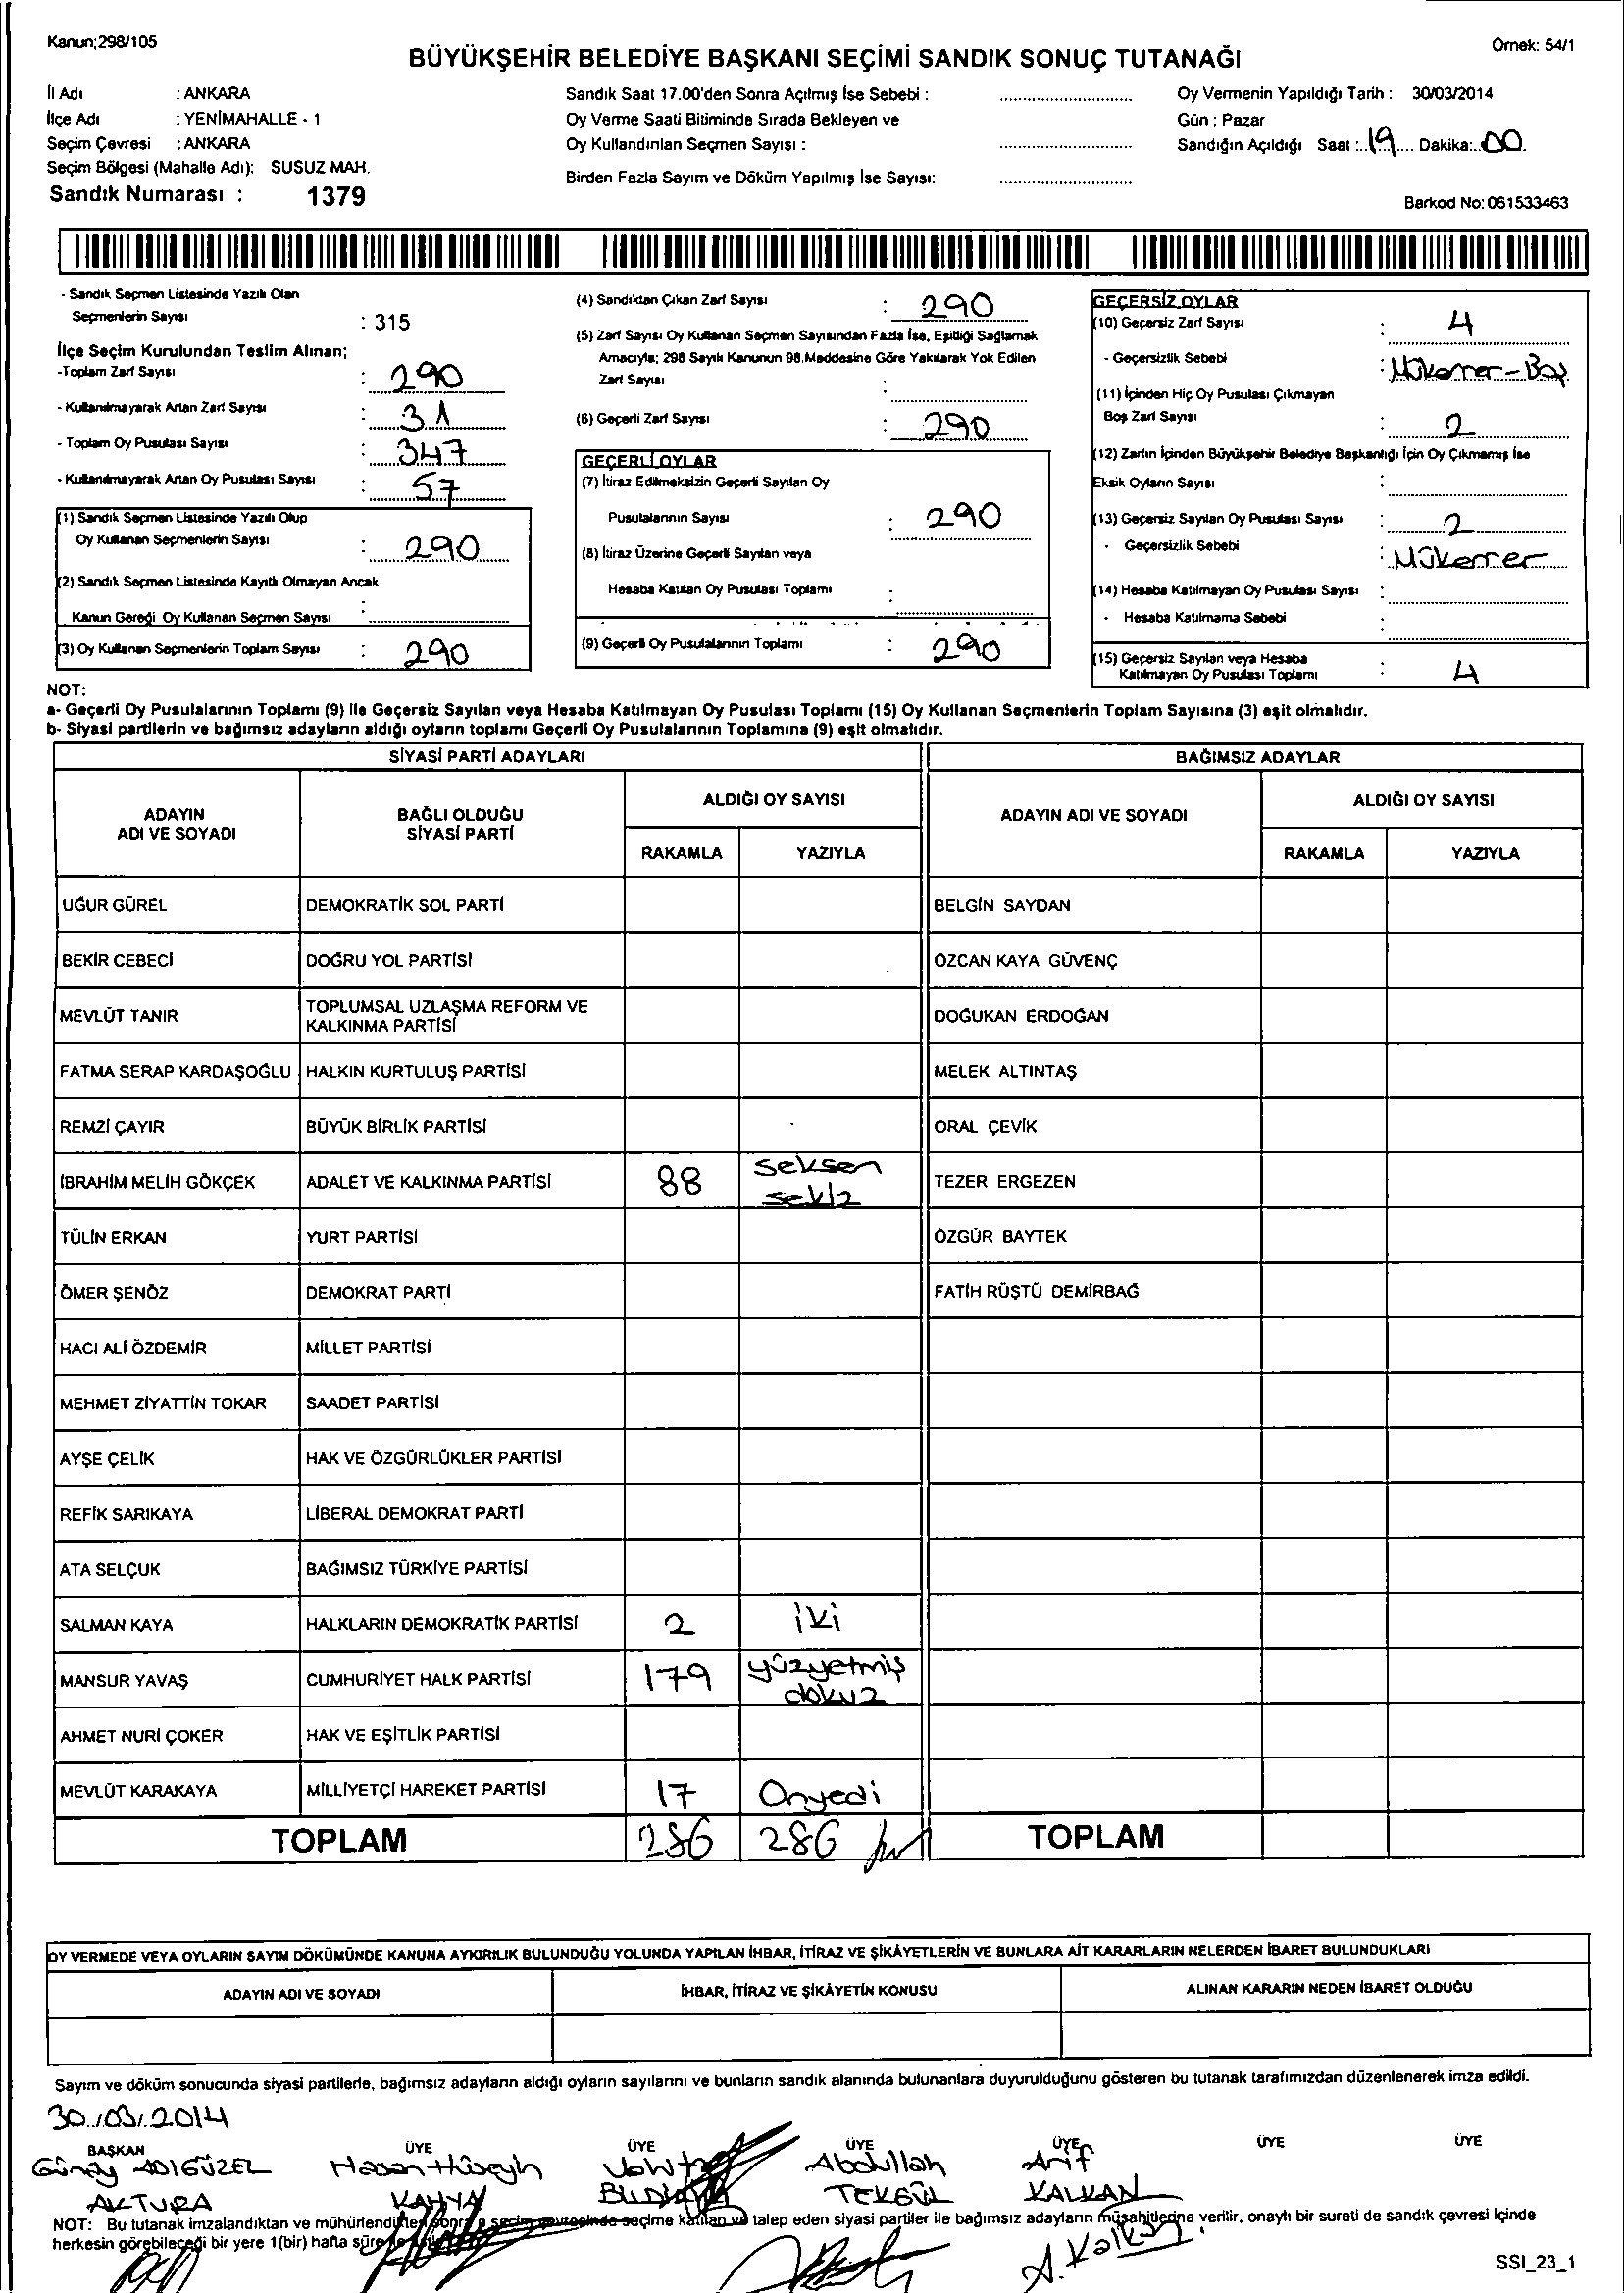 Kanun;298/105
BÜYÜKŞEHİR BELEDİYE BAŞKANI SEÇİMİ SANDIK SONUÇ TUTANAĞI
Örnek: 54/1
İl Adı : ANKARA
İlçe Adı : YENİMAHALLE - 1
Seçim Çevresi : ANKARA
Seçim Bölgesi (Mahalle Adı): SUSUZ MAH.
Sandık Numarası : 1379
Sandık Saat 17.00'den Sonra Açılmış İse Sebebi :
Oy Verme Saati Bitiminde Sırada Bekleyen ve
Oy Kullandırılan Seçmen Sayısı :
Birden Fazla Sayım ve Döküm Yapılmış İse Sayısı:
Oy Vermenin Yapıldığı Tarih : 30/03/2014
Gün : Pazar
Sandığın Açıldığı Saat : 19 Dakika: 00
Barkod No: 061533463
- Sandık Seçmen Listesinde Yazılı Olan
Seçmenlerin Sayısı : 315
İlçe Seçim Kurulundan Teslim Alınan;
-Toplam Zarf Sayısı : 290
- Kullanılmayarak Artan Zarf Sayısı : 31
- Toplam Oy Pusulası Sayısı : 347
- Kullanılmayarak Artan Oy Pusulası Sayısı : 57
(1) Sandık Seçmen Listesinde Yazılı Olup
Oy Kullanan Seçmenlerin Sayısı : 290
(2) Sandık Seçmen Listesinde Kayıtlı Olmayan Ancak
Kanun Gereği Oy Kullanan Seçmen Sayısı :
(3) Oy Kullanan Seçmenlerin Toplam Sayısı : 290
(4) Sandıktan Çıkan Zarf Sayısı : 290
(5) Zarf Sayısı Oy Kullanan Seçmen Sayısından Fazla İse, Eşitliği Sağlamak
Amacıyla; 298 Sayılı Kanunun 98.Maddesine Göre Yakılarak Yok Edilen
Zarf Sayısı :
(6) Geçerli Zarf Sayısı : 290
GEÇERLİ OYLAR
(7) İtiraz Edilmeksizin Geçerli Sayılan Oy
Pusulalarının Sayısı : 290
(8) İtiraz Üzerine Geçerli Sayılan veya
Hesaba Katılan Oy Pusulası Toplamı :
(9) Geçerli Oy Pusulalarının Toplamı : 290
GEÇERSİZ OYLAR
(10) Geçersiz Zarf Sayısı : 4
- Geçersizlik Sebebi : Mükerrer-Boş
(11) İçinden Hiç Oy Pusulası Çıkmayan
Boş Zarf Sayısı : 2
(12) Zarfın İçinden Büyükşehir Belediye Başkanlığı İçin Oy Çıkmamış İse
Eksik Oyların Sayısı :
(13) Geçersiz Sayılan Oy Pusulası Sayısı : 2
- Geçersizlik Sebebi : Mükerrer
(14) Hesaba Katılmayan Oy Pusulası Sayısı :
- Hesaba Katılmama Sebebi :
(15) Geçersiz Sayılan veya Hesaba
Katılmayan Oy Pusulası Toplamı : 4
NOT:
a- Geçerli Oy Pusulalarının Toplamı (9) ile Geçersiz Sayılan veya Hesaba Katılmayan Oy Pusulası Toplamı (15) Oy Kullanan Seçmenlerin Toplam Sayısına (3) eşit olmalıdır.
b- Siyasi partilerin ve bağımsız adayların aldığı oyların toplamı Geçerli Oy Pusulalarının Toplamına (9) eşit olmalıdır.
SİYASİ PARTİ ADAYLARI BAĞIMSIZ ADAYLAR
ADAYIN ADI VE SOYADI BAĞLI OLDUĞU SİYASİ PARTİ ALDIĞI OY SAYISI ADAYIN ADI VE SOYADI ALDIĞI OY SAYISI
RAKAMLA YAZIYLA RAKAMLA YAZIYLA
UĞUR GÜREL DEMOKRATİK SOL PARTİ BELGİN SAYDAN
BEKİR CEBECİ DOĞRU YOL PARTİSİ ÖZCAN KAYA GÜVENÇ
MEVLÜT TANIR TOPLUMSAL UZLAŞMA REFORM VE KALKINMA PARTİSİ DOĞUKAN ERDOĞAN
FATMA SERAP KARDAŞOĞLU HALKIN KURTULUŞ PARTİSİ MELEK ALTINTAŞ
REMZİ ÇAYIR BÜYÜK BİRLİK PARTİSİ ORAL ÇEVİK
İBRAHİM MELİH GÖKÇEK ADALET VE KALKINMA PARTİSİ 88 seksen sekiz TEZER ERGEZEN
TÜLİN ERKAN YURT PARTİSİ ÖZGÜR BAYTEK
ÖMER ŞENÖZ DEMOKRAT PARTİ FATİH RÜŞTÜ DEMİRBAĞ
HACI ALİ ÖZDEMİR MİLLET PARTİSİ
MEHMET ZİYATTİN TOKAR SAADET PARTİSİ
AYŞE ÇELİK HAK VE ÖZGÜRLÜKLER PARTİSİ
REFİK SARIKAYA LİBERAL DEMOKRAT PARTİ
ATA SELÇUK BAĞIMSIZ TÜRKİYE PARTİSİ
SALMAN KAYA HALKLARIN DEMOKRATİK PARTİSİ 2 iki
MANSUR YAVAŞ CUMHURİYET HALK PARTİSİ 179 yüzyetmiş dokuz
AHMET NURİ ÇOKER HAK VE EŞİTLİK PARTİSİ
MEVLÜT KARAKAYA MİLLİYETÇİ HAREKET PARTİSİ 17 Onyedi
TOPLAM 286 286 TOPLAM
OY VERMEDE VEYA OYLARIN SAYIM DÖKÜMÜNDE KANUNA AYKIRILIK BULUNDUĞU YOLUNDA YAPILAN İHBAR, İTİRAZ VE ŞİKÂYETLERİN VE BUNLARA AİT KARARLARIN NELERDEN İBARET BULUNDUKLARI
ADAYIN ADI VE SOYADI İHBAR, İTİRAZ VE ŞİKÂYETİN KONUSU ALINAN KARARIN NEDEN İBARET OLDUĞU
Sayım ve döküm sonucunda siyasi partilerle, bağımsız adayların aldığı oyların sayılarını ve bunların sandık alanında bulunanlara duyurulduğunu gösteren bu tutanak tarafımızdan düzenlenerek imza edildi.
30/03/2014
BAŞKAN ÜYE ÜYE ÜYE ÜYE ÜYE ÜYE
Günay ADIGÜZEL Hasan Hüseyin Abdullah Arif
AKTURA KAHYA TEKGÜL KALKAN
NOT: Bu tutanak imzalandıktan ve mühürlendikten sonra seçim çevresinde seçime katılan ve talep eden siyasi partiler ile bağımsız adayların müşahitlerine verilir, onaylı bir sureti de sandık çevresi içinde
herkesin görebileceği bir yere 1(bir) hafta süre
A. Kalkan
SSI_23_1